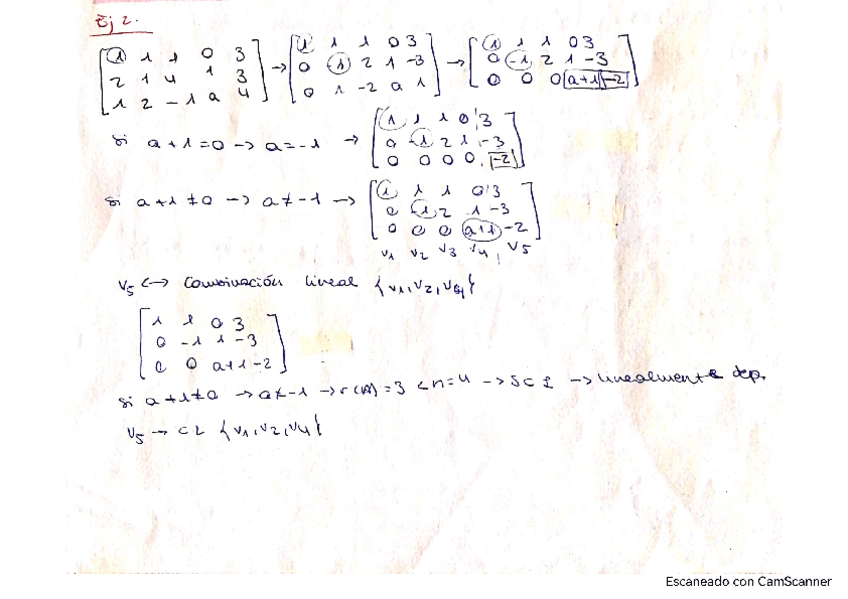 Ej 2.
[1 1 1 0 3] → [1 1 1 0 3] → [1 1 1 0 3]
[2 1 4 1 3] [0 -1 2 1 -3] [0 -1 2 1 -3]
[1 2 -1 a 4] [0 1 -2 a 1] [0 0 0 a+1 -2]
Si a+1=0 → a=-1 → [1 1 1 0 3]
[0 -1 2 1 -3]
[0 0 0 0 -2]
Si a+1≠0 → a≠-1 → [1 1 1 0 3]
[0 -1 2 1 -3]
[0 0 0 a+1 -2]
v1 v2 v3 v4 v5
v5 → Combinación lineal {v1, v2, v4}
[1 1 0 3]
[0 -1 1 -3]
[0 0 a+1 -2]
Si a+1≠0 → a≠-1 → r(A)=3 < n=4 → SCI → linealmente dep.
v5 → CL {v1, v2, v4}
Escaneado con CamScanner